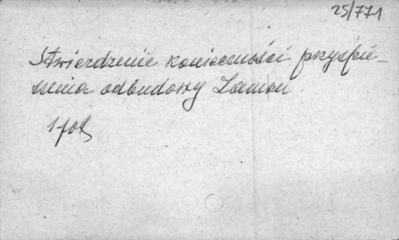 25/771
Stwierdzenie konieczności przyspie-
szenia odbudowy Zamku
1 fot